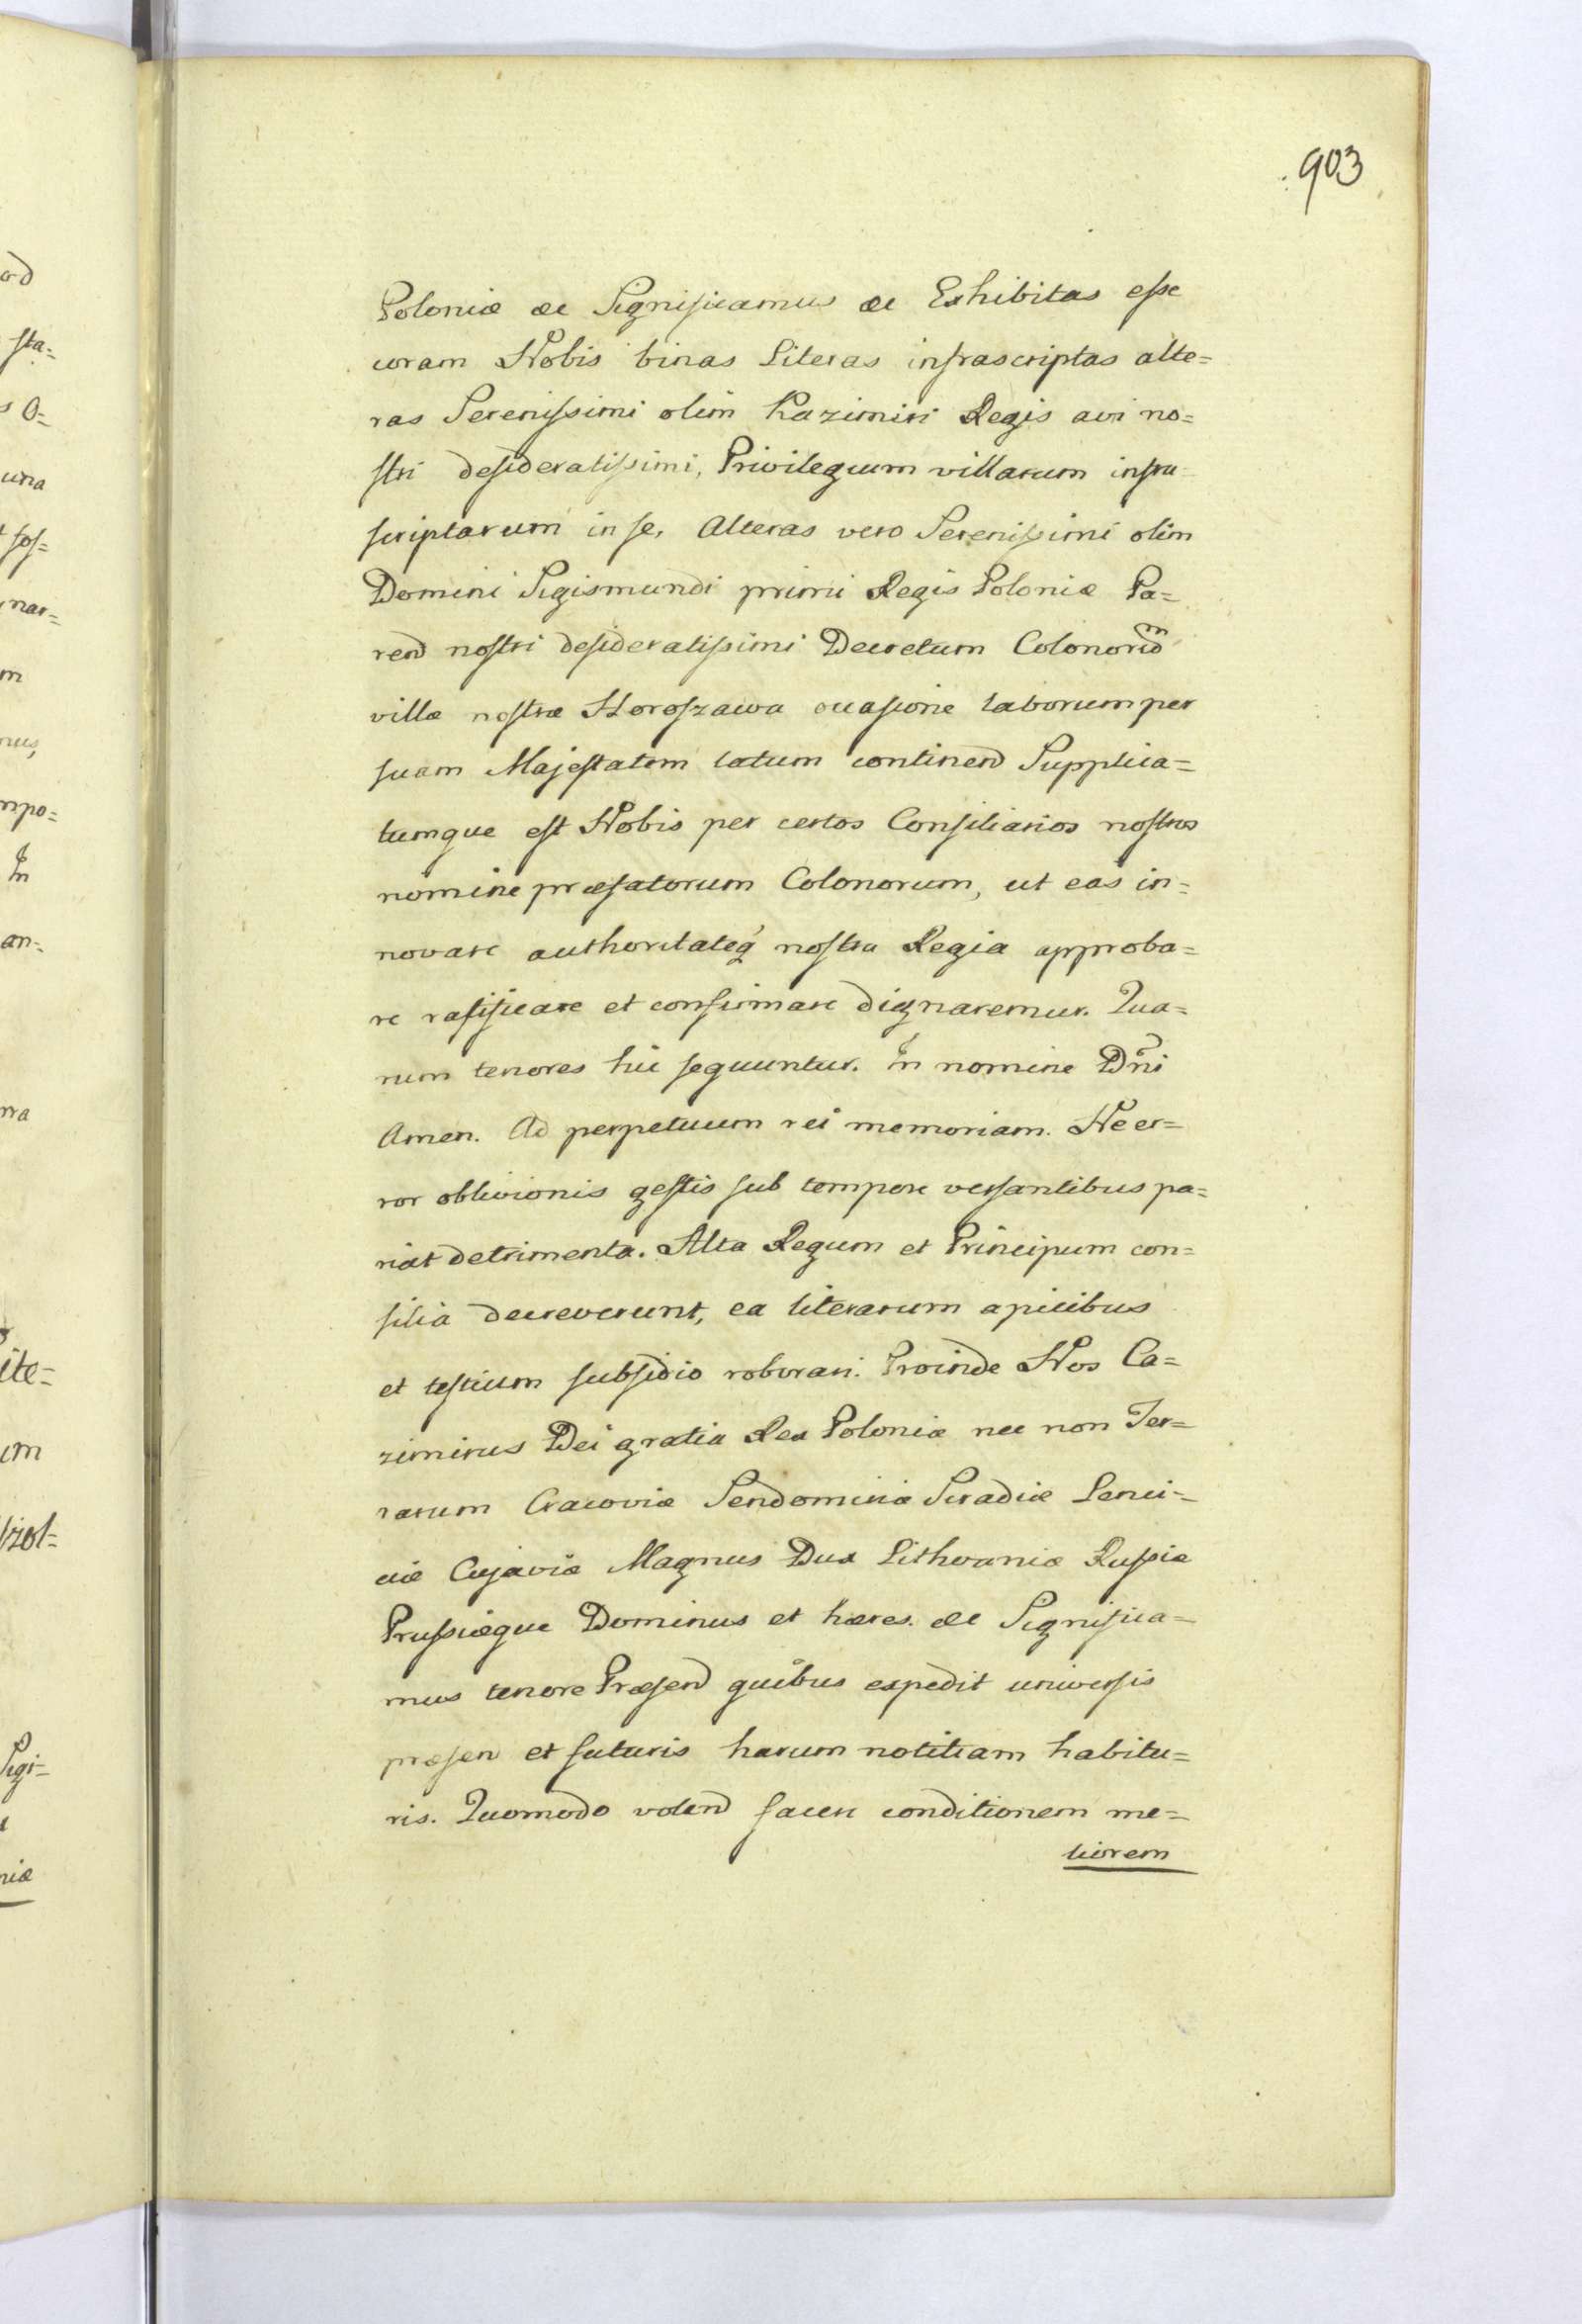 903
Poloniæ &c Significamus &c Exhibitas esse
coram Nobis binas Literas infrascriptas alte=
ras Serenissimi olim Kazimiri Regis avi no=
stri desideratissimi, Privilegium villarum infra
scriptarum in se, Alteras vero Serenissimi olim
Domini Sigismundi primi Regis Poloniæ Pa=
rend nostri desideratissimi Decretum Colonorum
villæ nostræ Horoszawa occasione laborum per
suam Majestatem latum continend Supplica=
tumque est Nobis per certos Consiliarios nostros
nomine præfatorum Colonorum, ut eas in=
novare authoritateq nostra Regia approba=
re ratificare et confirmare dignaremur. Qua=
rum tenores hic sequuntur. In nomine Dni
Amen. Ad perpetuum rei memoriam. Ne er=
ror oblivionis gestis sub tempore versantibus pa=
riat detrimenta. Alta Regum et Principum con=
silia decreverunt, ea literarum apicibus
et testium subsidio roborari. Proinde Nos Ca=
zimirus Dei gratia Rex Poloniæ nec non Ter=
rarum Cracoviæ Sendomiriæ Siradiæ Lenci=
ciæ Cujaviæ Magnus Dux Lithvaniæ Russiæ
Prussiæque Dominus et hæres. &c Significa=
mus tenore Præsend quibus expedit universis
præsen et futuris harum notitiam habitu=
ris. Quomodo volend facere conditionem me=
liorem
ad
sta=
s O=
una
sos=
nar=
m
nus,
mpo=
In
an=
rra
ite=
um
Sigi=
niæ